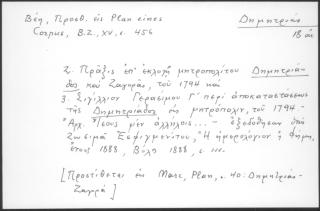 Βέη, Προσθ. εἰς Plan eines
Corpus, B.Z., XV, σ. 456
Δημητριάς
18 αἰ
2. Πρᾶξις ἐπ' ἐκλογῇ μητροπολίτου Δημητριά-
δος καὶ Ζαγορᾶς, τοῦ 1794 καὶ
3. Σιγίλλιον Γερασίμου Γ' περὶ ἀποκαταστάσεως
τῆς Δημητριάδος εἰς μητρόπολιν, τοῦ 1794 -
Ἀρχ. μὲν ἀλλήλοις... - ἐξεδόθησαν ὑπὸ
Ζωσιμᾶ Ἐσφιγμενίτου, "Ἡμερολόγιον ἡ Φήμη,
ἔτους 1888, Βόλῳ 1888, σ.
[Προστίθεται εἰς Marc, Plan, σ. 40: Δημητριάς -
Ζαγορά]